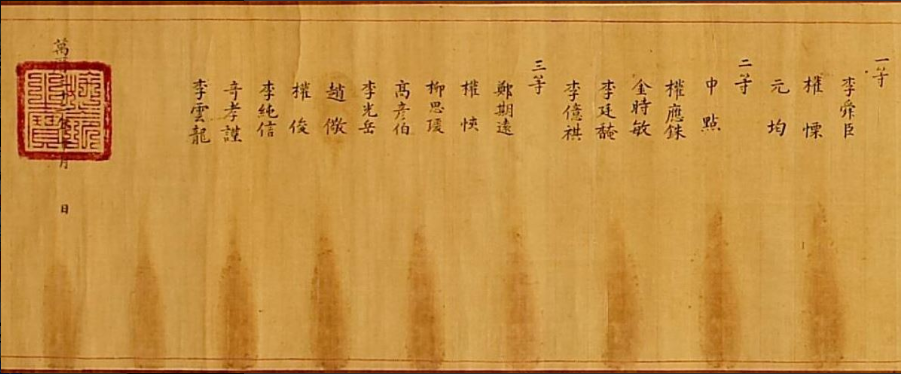 一等
李舜臣
權慄
元均
二等
申點
權應銖
金時敏
李廷馣
李億祺
三等
鄭期遠
權悏
柳思瑗
高彦伯
李光岳
趙儆
權俊
李純信
奇孝謹
李雲龍
萬曆 月 日